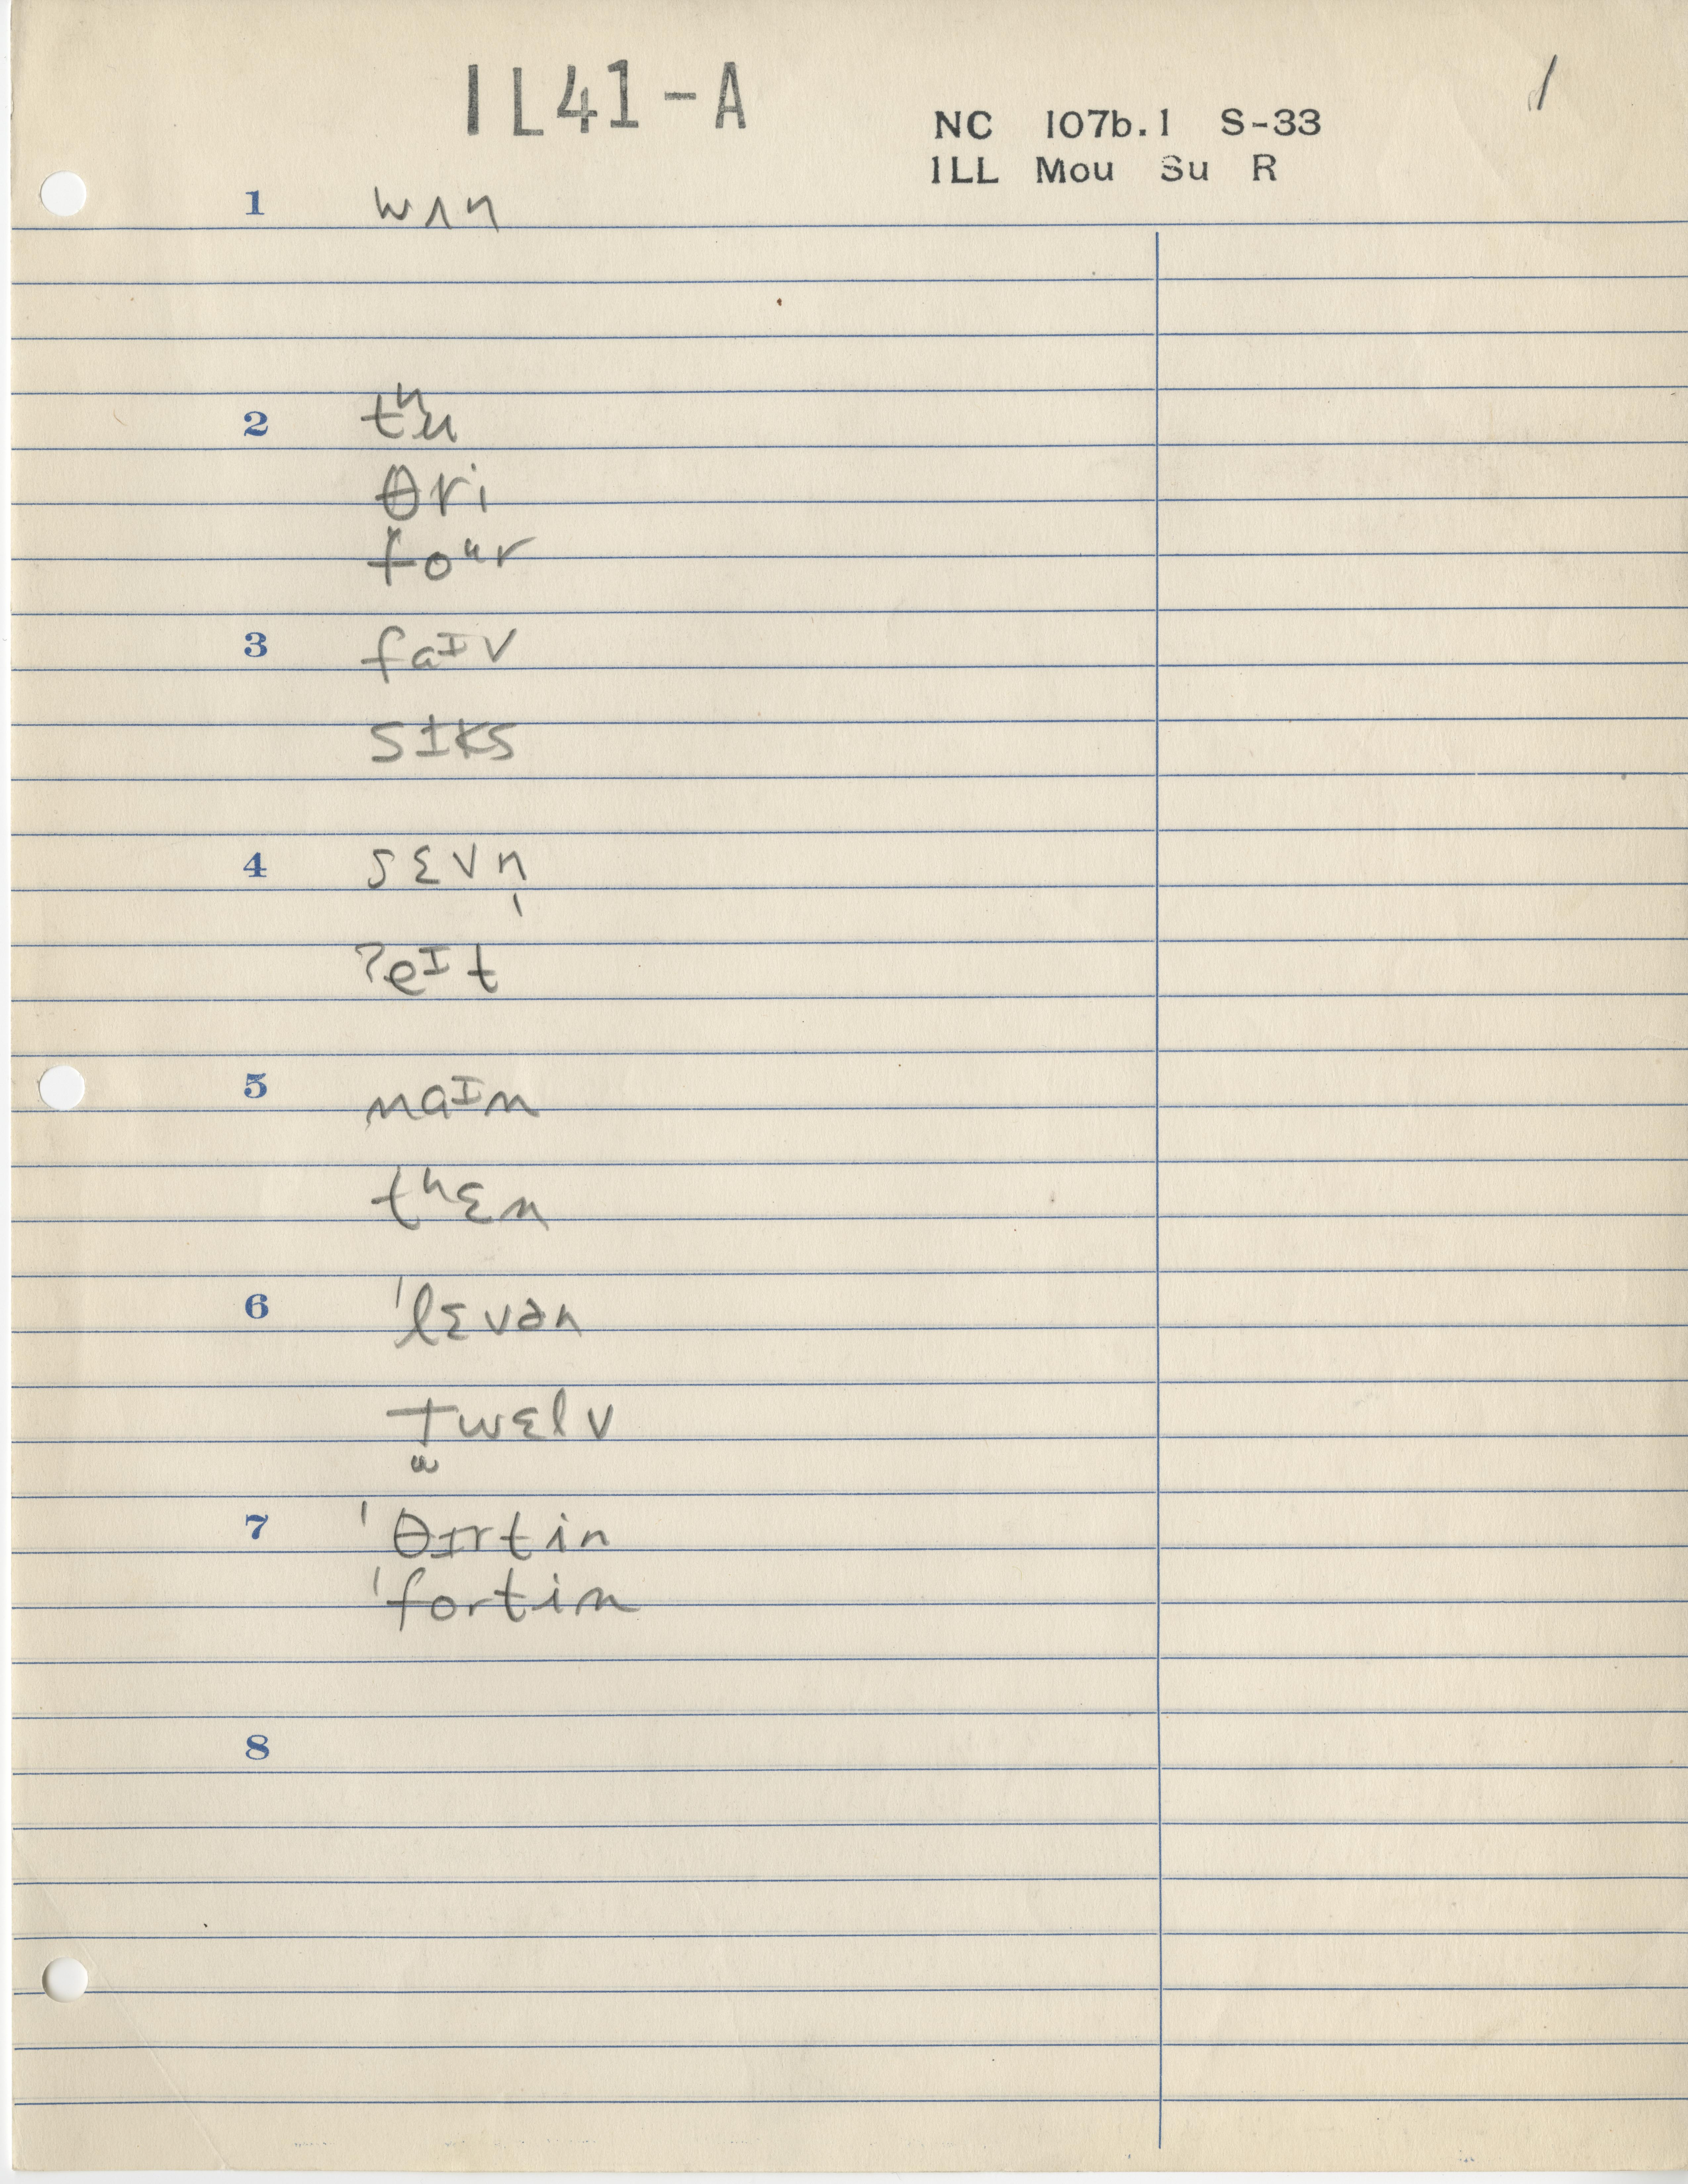 1L41-A
NC 107b.1 S-33
1LL Mou Su R
1
1 wʌn
2 tʰu
θri
foᵘr
3 faᴵv
sɪks
4 sɛvn̩
ʔeᴵt
5 naᴵn
tʰɛn
6 ˈlɛvən
t̫wɛlv
7 ˈθɪrtin
ˈfortin
8